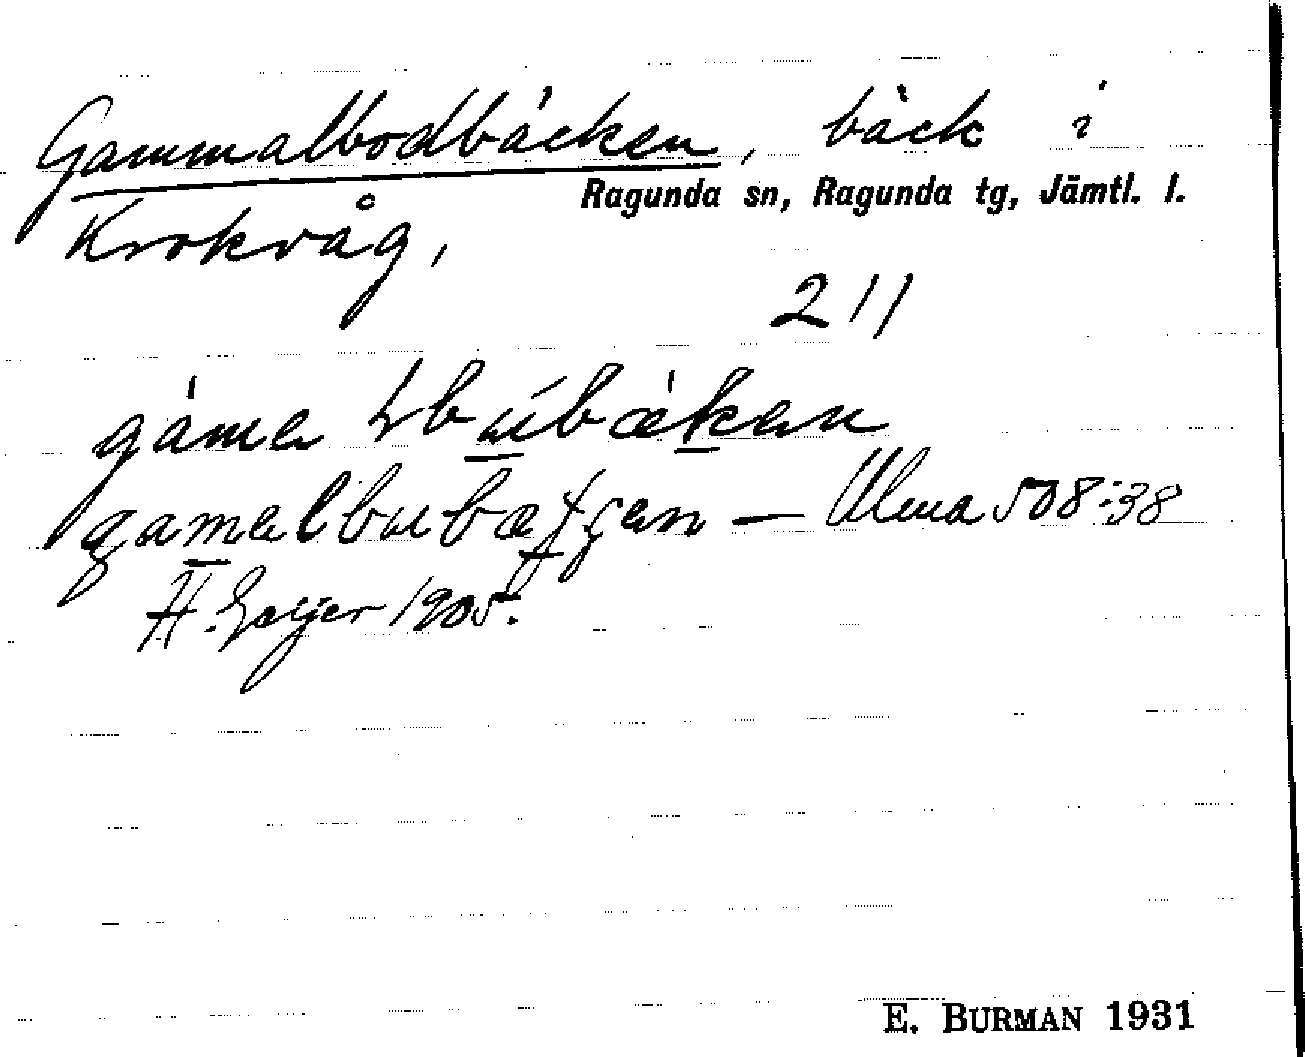 Gammalbodbäcken, bäck i
Ragunda sn, Ragunda tg, Jämtl. l.
Krokvåg,
211
— Ulma 508:38
H. Geijer 1905.
E. BURMAN 1931